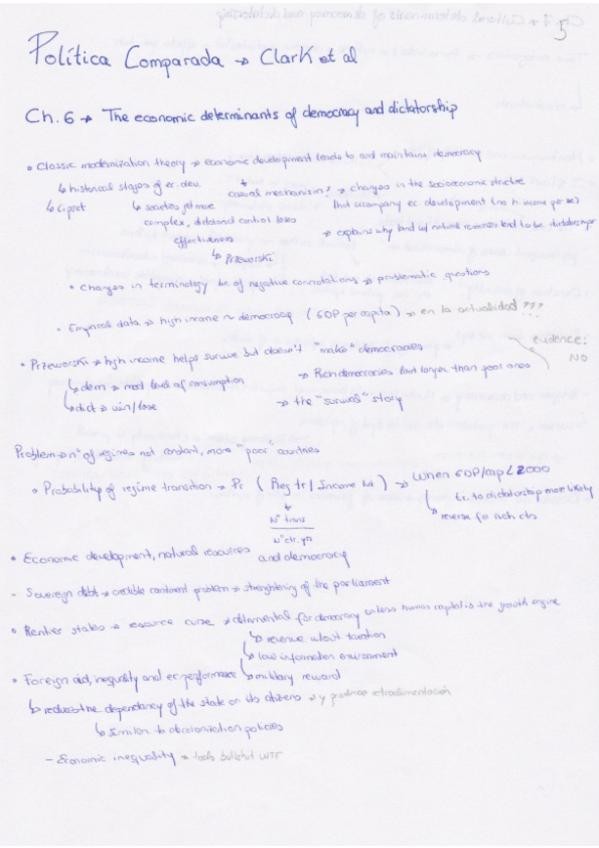 5
Política Comparada → Clark et al
Ch. 6 → The economic determinants of democracy and dictatorship
• Classic modernization theory → economic development leads to and maintains democracy
↳ historical stages of ec. dev. causal mechanism? → changes in the socioeconomic structure
↳ Lipset ↳ societies get more that accompany ec. development (no h income per se)
complex, dictatorial control loses → explains why land w/ natural resources tend to be dictatorships
effectiveness
↳ Przeworski
• Changes in terminology bc of negative connotations → problematic questions
• Empirical data → high income ~ democracy (GDP per capita) → en la actualidad ???
• Przeworski → high income helps survive but doesn't "make" democracies evidence:
NO
↳ dem → level of consumption → Rich democracies last longer than poor ones
↳ dict → win/lose → the "survival" story
Problem → nº of regimes not constant, more "poor" countries
• Probability of regime transition → Pr (Reg tr / Income lvl) → when GDP/cap < 2000
↳ tr. to dictatorship more likely
↳ reverse for rich cts
Nº trans
Nº ctr. yr
• Economic development, natural resources and democracy
- Sovereign debt → credible commitment problem → strenghtening of the parliament
• Rentier states → resource curse → detrimental for democracy unless human capital is the growth engine
↳ revenue without taxation
↳ low information environment
↳ military reward
• Foreign aid, inequality and ec performance
↳ reduces the dependency of the state on its citizens → y produce retroalimentación
↳ similar to decolonization policies
- Economic inequality → bullshit WTF